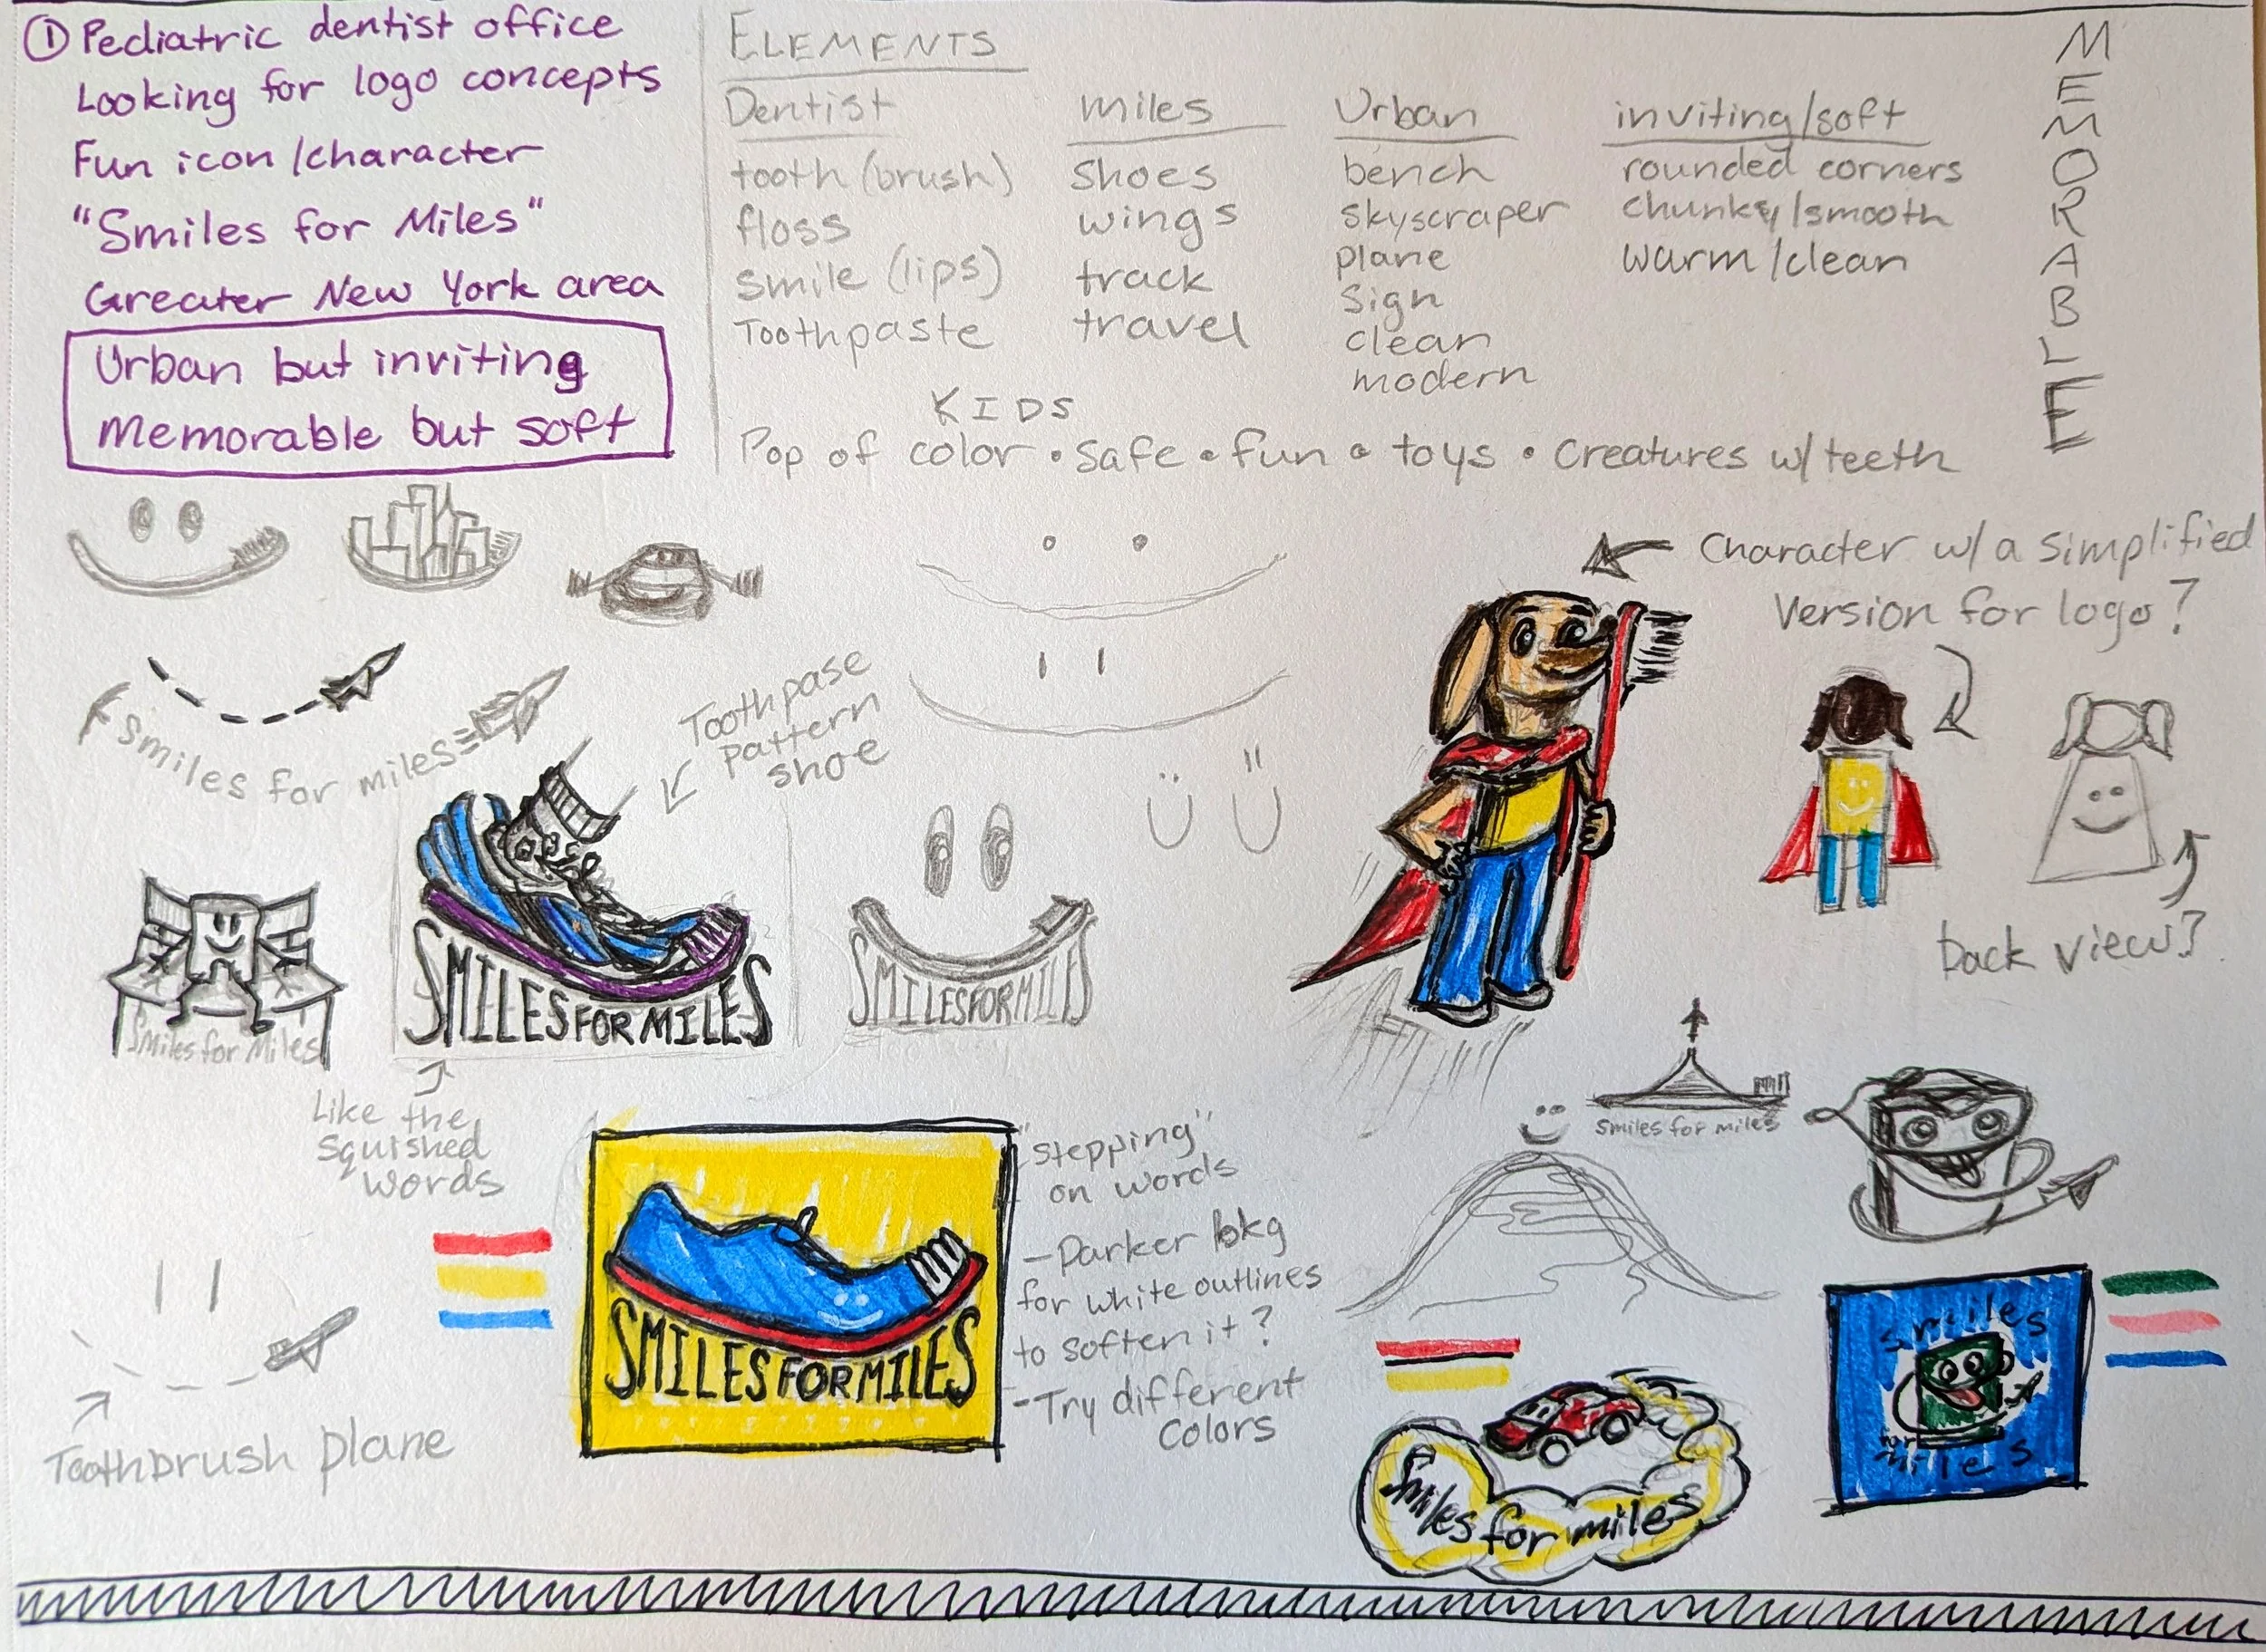 ① Pediatric dentist office
Looking for logo concepts
Fun icon/character
"Smiles for Miles"
Greater New York area
Urban but inviting
Memorable but soft
ELEMENTS
Dentist
tooth (brush)
floss
smile (lips)
Toothpaste
miles
shoes
wings
track
travel
Urban
bench
skyscraper
plane
sign
clean
modern
inviting/soft
rounded corners
chunky/smooth
warm/clean
MEMORABLE
KIDS
Pop of color • safe • fun • toys • creatures w/teeth
Character w/ a simplified
version for logo?
back view?
smiles for miles
Toothpase
pattern
shoe
Smiles for Miles
SMILES FOR MILES
SMILES FOR MILES
Like the
squished
words
Smiles for miles
SMILES FOR MILES
"stepping"
on words
- Darker bkg
for white outlines
to soften it?
- Try different
colors
Toothbrush plane
Smiles for miles
smiles
for
miles